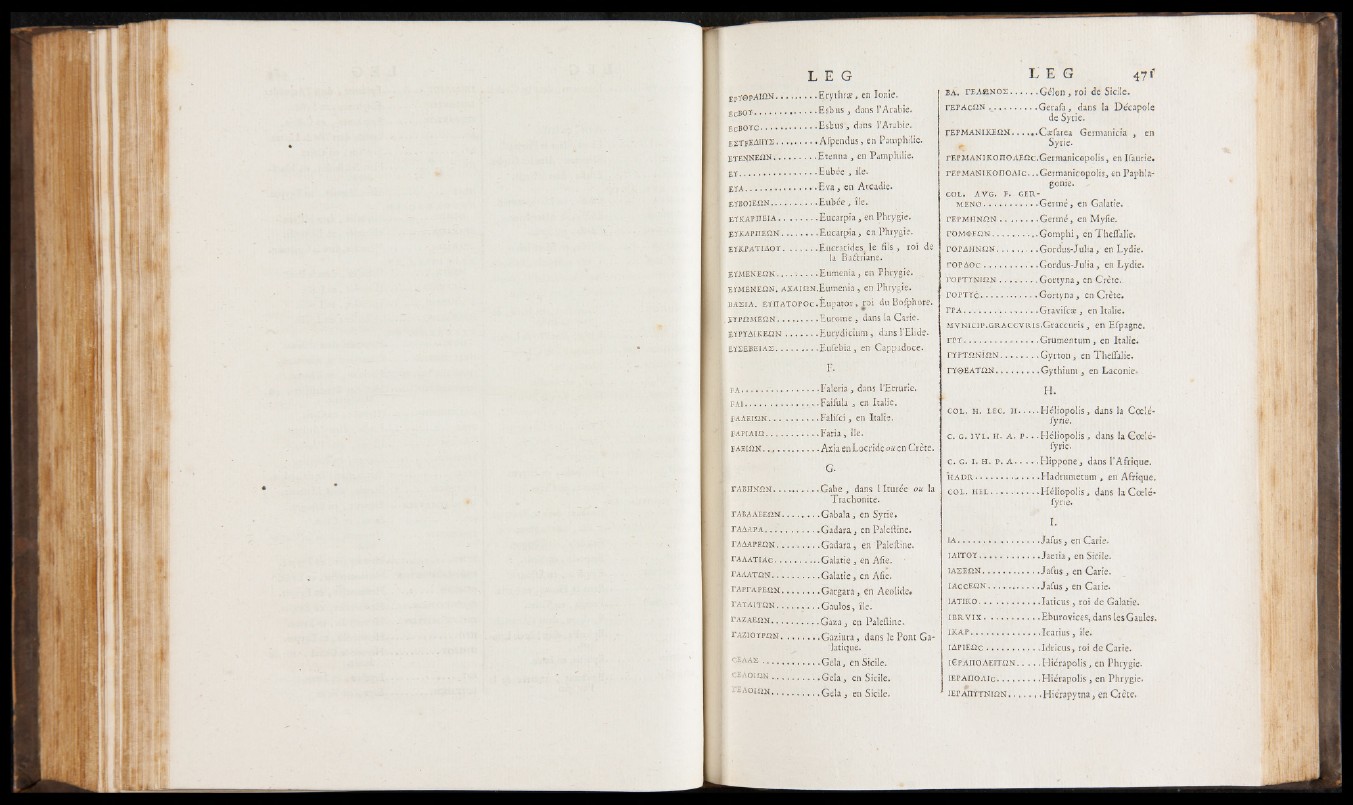 LEG
ΕΡΥΘΡΑΙΩΝ.........Erythræ, en Ionie.
ΕϲΒΟΥ............Esbus, dans l'Arabie.
ΕϲΒΟΥϹ...........Esbus, dans l'Arabie.
ΕΣΤFΕΔΙΙΥΣ........Aſpendus, en Pamphilie.
ΕΤΕΝΝΕΩΝ.........Etenna, en Pamphilie.
ΕΥ................Eubée, île.
ΕΥΑ...............Eva, en Arcadie.
ΕΥΒΟΙΕΩΝ..........Eubée, île.
ΕΥΚΑΡΠΕΙΑ........Eucarpia, en Phrygie.
ΕΥΚΑΡΠΕΩΝ........Eucarpia, en Phrygie.
ΕΥΚΡΑΤΙΔΟΥ.......Eucratides le fils, roi de
la Bactriane.
ΕΥΜΕΝΕΩΝ.........Eumenia, en Phrygie.
ΕΥΜΕΝΕΩΝ. ΑΧΑΙΩΝ.Eumenia, en Phrygie.
ΒΑΣΙΛ. ΕΥΠΑΤΟΡΟϹ.Eupator, roi du Boſphore.
ΕΥΡΩΜΕΩΝ.........Eurome, dans la Carie.
ΕΥΡΥΔΙΚΕΩΝ.......Eurydicium, dans l'Elide.
ΕΥΣΕΒΕΙΑΣ.........Euſebia, en Cappadoce.
F.
FA................Faleria, dans l'Etrurie.
FAI...............Faiſula, en Italie.
FΑΛΕΙΩΝ..........Faliſci, en Italie.
FΑΡΙΑΙΩ..........Faria, île.
FΑΞΙΩΝ...........Axia en Locride ou en Crète.
G.
ΓΑΒΗΝΩΝ.........Gabe, dans l'Iturée ou la
Trachonite.
ΓΑΒΑΛΕΩΝ........Gabala, en Syrie.
ΓΑΔΑΡΑ...........Gadara, en Paleſtine.
ΓΑΔΑΡΕΩΝ.........Gadara, en Paleſtine.
ΓΑΛΑΤΙΑϹ.........Galatie, en Aſie.
ΓΑΛΑΤΩΝ..........Galatie, en Aſie.
ΓΑΡΓΑΡΕΩΝ........Gargara, en Aeolide.
ΓΑΥΛΙΤΩΝ.........Gaulos, île.
ΓΑΖΑΕΩΝ..........Gaza, en Paleſtine.
ΓΑΖΙΟΥΡΩΝ........Gaziura, dans le Pont Ga-
latique.
CΕΛΑΣ............Gela, en Sicile.
CΕΛΟΙΩΝ..........Gela, en Sicile.
ΓΕΛΟΙΩΝ..........Gela, en Sicile.
LEG 475
ΒΑ. ΓΕΛΩΝΟΣ......Gélon, roi de Sicile.
ΓΕΡΑϹΩΝ..........Geraſa, dans la Décapole
de Syrie.
ΓΕΡΜΑΝΙΚΕΩΝ......Cæſarea Germanicia, en
Syrie.
ΓΕΡΜΑΝΙΚΟΠΟΛΕΩϹ.Germanicopolis, en Iſaurie.
ΓΕΡΜΑΝΙΚΟΠΟΛΙϹ...Germanicopolis, en Paphla-
gonie.
COL. AVG. F. GER-
MENO...........Germé, en Galatie.
ΓΕΡΜΗΝΩΝ........Germé, en Myſie.
ΓΟΜΦΕΩΝ.........Gomphi, en Theſſalie.
ΓΟΡΔΗΝΩΝ........Gordus-Julia, en Lydie.
ΓΟΡΔΟϹ...........Gordus-Julia, en Lydie.
ΓΟΡΤΥΝΙΩΝ........Gortyna, en Crète.
ΓΟΡΤΥϹ...........Gortyna, en Crète.
ΓΡΑ...............Graviſcæ, en Italie.
MVNICIP.GRACCVRIS.Graccuris, en Eſpagne.
ΓΡΥ...............Grumentum, en Italie.
ΓΥΡΤΩΝΙΩΝ........Gyrton, en Theſſalie.
ΓΥΘΕΑΤΩΝ.........Gythium, en Laconie.
H.
COL. H. LEG. H.....Héliopolis, dans la Cœlé-
ſyrie.
C. G. IVL. H. A. P...Héliopolis, dans la Cœlé-
ſyrie.
C. G. I. H. P. A.....Hippone, dans l'Afrique.
HADR.............Hadrumetum, en Afrique.
COL. HEL..........Héliopolis, dans la Cœlé-
ſyrie.
I.
ΙΑ................Jaſus, en Carie.
ΙΑΙΤΟΥ............Jaetia, en Sicile.
ΙΑΣΕΩΝ...........Jaſus, en Carie.
ΙΑϹϹΕΩΝ..........Jaſus, en Carie.
IATIKO............Iaticus, roi de Galatie.
IBRVIX...........Eburovices, dans les Gaules.
ΙΚΑΡ..............Icarius, île.
ΙΔΡΙΕΩϹ...........Idricus, roi de Carie.
ΙЄΡΑΠΟΛΕΙΤΩΝ.....Hiérapolis, en Phrygie.
ΙΕΡΑΠΟΛΙϹ.........Hiérapolis, en Phrygie.
ΙΕΡΑΠΥΤΝΙΩΝ......Hiérapytna, en Crète.